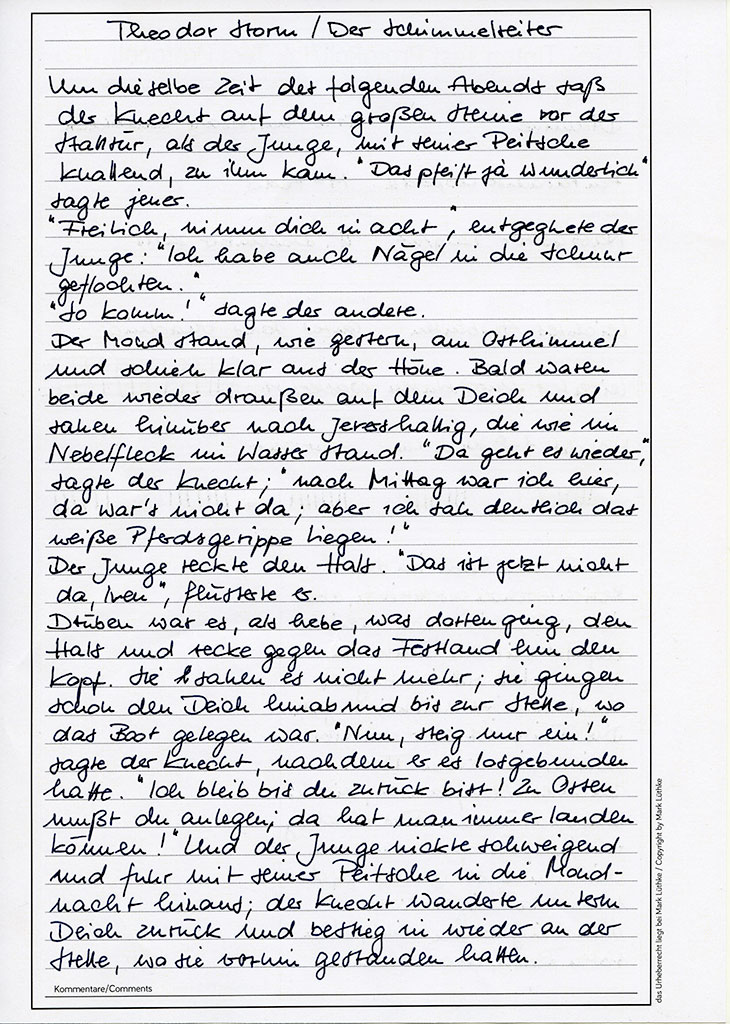 Theodor Storm / Der Schimmelreiter
Um dieselbe Zeit des folgenden Abends saß
der Knecht auf dem großen Steine vor der
Stalltür, als der Junge, mit seiner Peitsche
knallend, zu ihm kam. "Das pfeift ja wunderlich"
sagte jener.
"Freilich, nimm dich in acht", entgegnete der
Junge: "Ich habe auch Nägel in die Schnur
geflochten."
"So komm!" sagte der andere.
Der Mond stand, wie gestern, am Osthimmel
und schien klar aus der Höhe. Bald waren
beide wieder draußen auf dem Deich und
sahen hinüber nach Jevershallig, die wie im
Nebelfleck im Wasser stand. "Da geht es wieder,"
sagte der Knecht; "nach Mittag war ich hier,
da war's nicht da; aber ich sah deutlich das
weiße Pferdsgerippe liegen!"
Der Junge reckte den Hals. "Das ist jetzt nicht
da, Iven", flüsterte er.
Drüben war es, als hebe, was dorten ging, den
Hals und recke gegen das Festland hin den
Kopf. Sie sahen es nicht mehr; sie gingen
schon den Deich hinab und bis zur Stelle, wo
das Boot gelegen war. "Nun, steig nur ein!"
sagte der Knecht, nachdem er es losgebunden
hatte. "Ich bleib bis du zurück bist! Zu Osten
mußt du anlegen; da hat man immer landen
können!" Und der Junge nickte schweigend
und fuhr mit seiner Peitsche in die Mond-
nacht hinaus; der Knecht wanderte unterm
Deich zurück und bestieg in wieder an der
Stelle, wo sie vorhin gestanden hatten.
Kommentare/Comments
das Urheberrecht liegt bei Mark Lüthke / Copyright by Mark Lüthke